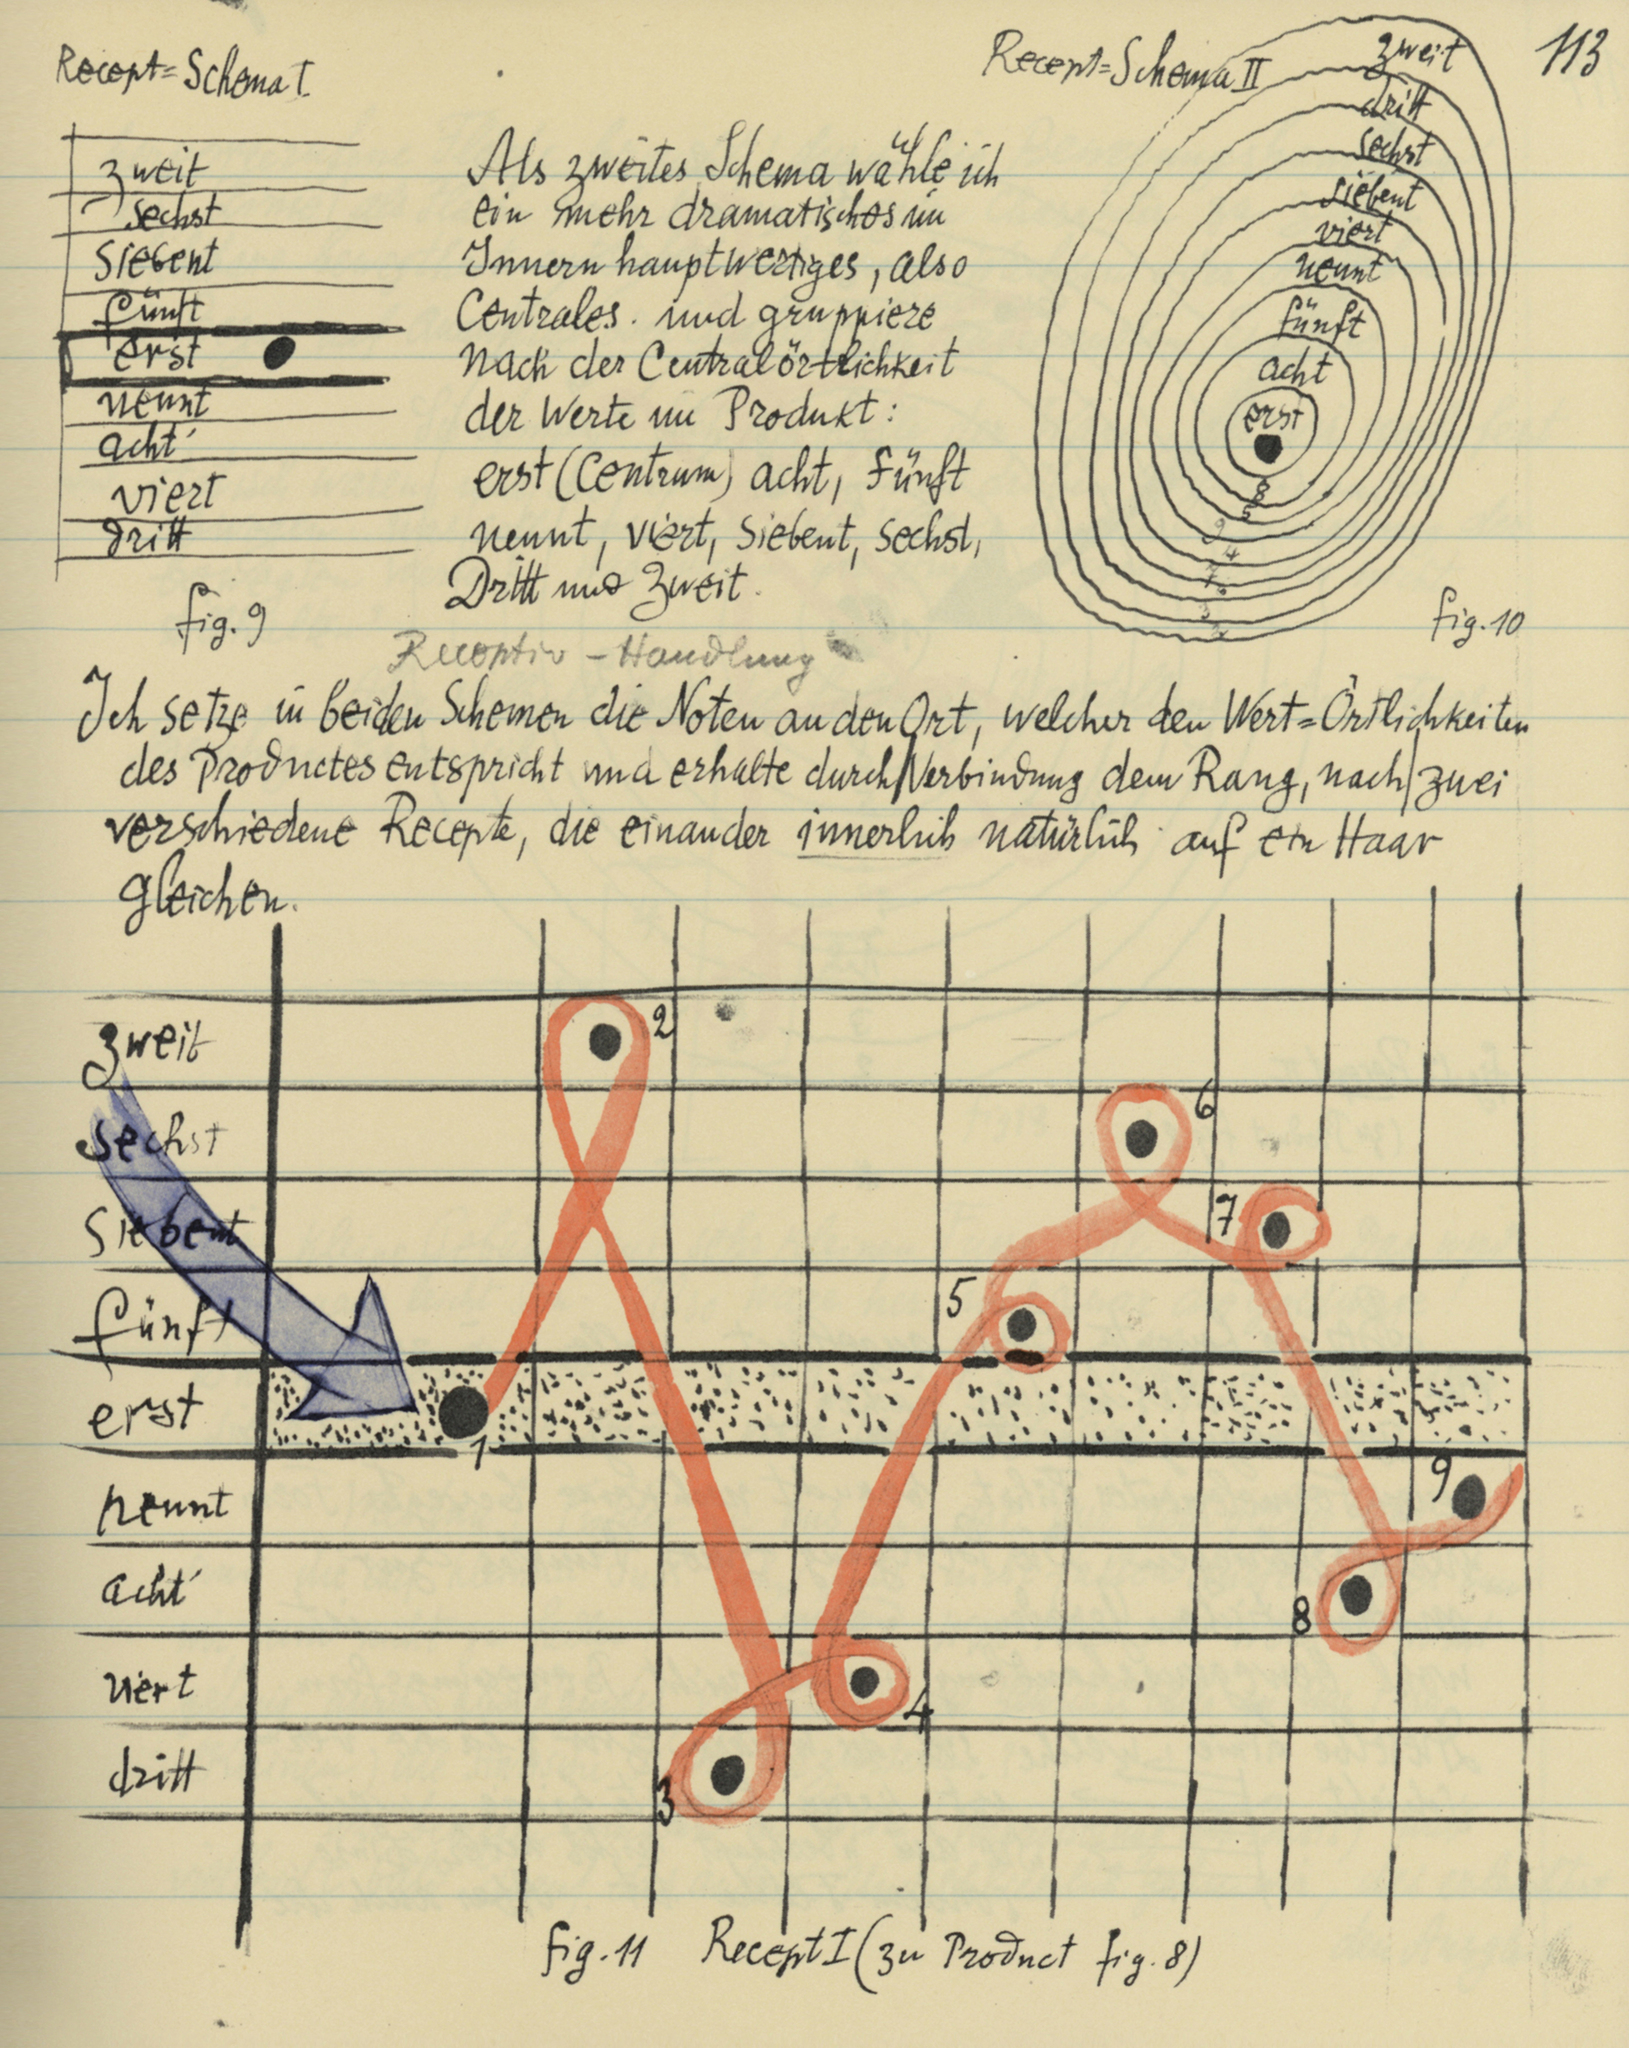 113
Recept=Schema I.
zweit
sechst
siebent
fünft
erst
nennt
acht
viert
dritt
fig. 9
Als zweites Schema wähle ich
ein mehr dramatisches im
Innern hauptwertiges, also
Centrales. und gruppiere
nach der Centralörtlichkeit
der Werte im Produkt:
erst (Centrum) acht, fünft
nennt, viert, siebent, sechst,
Dritt und zweit.
Recept=Schema II
zweit
dritt
sechst
siebent
viert
nennt
fünft
acht
erst
8
5
9
4
7
6
3
2
fig. 10
Receptiv – Handlung
Ich setze in beiden Schemen die Noten an den Ort, welcher den Wert=Örtlichkeiten
des Productes entspricht und erhalte durch Verbindung dem Rang, nach zwei
verschiedene Recepte, die einander innerlich natürlich auf ein Haar
gleichen.
zweit
sechst
siebent
fünft
erst
nennt
acht
viert
dritt
1
2
3
4
5
6
7
8
9
fig. 11 Recept I (zu Product fig. 8)